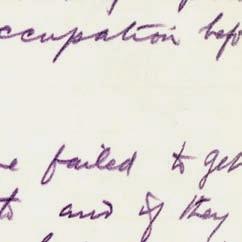 ccupation befo
e failed to get
to and if they